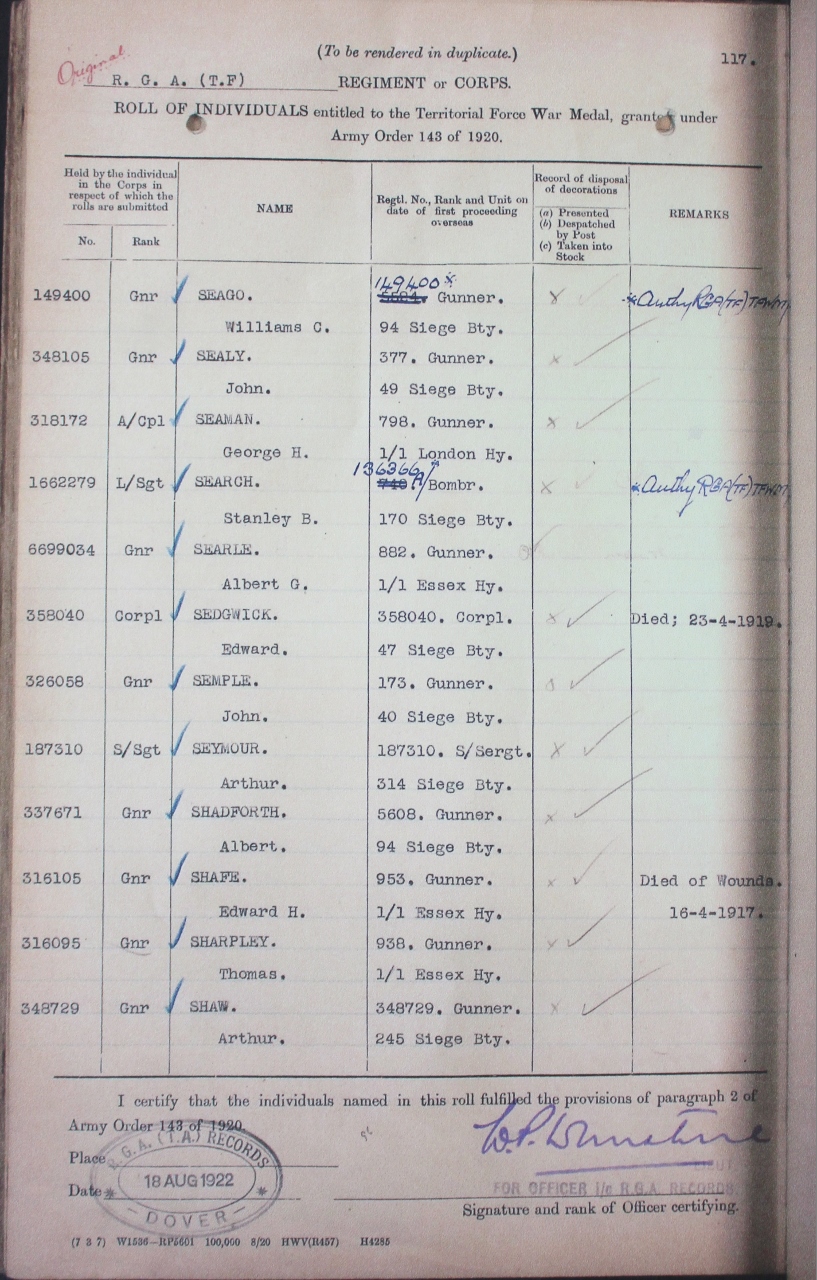 Original
(To be rendered in duplicate.)
117.
R. G. A. (T.F) REGIMENT OR CORPS.
ROLL OF INDIVIDUALS entitled to the Territorial Force War Medal, granted under
Army Order 143 of 1920.
Held by the individual in the Corps in respect of which the rolls are submitted
No. Rank
NAME
Regtl. No., Rank and Unit on date of first proceeding overseas
Record of disposal of decorations
(a) Presented
(b) Despatched by Post
(c) Taken into Stock
REMARKS
149400 Gnr SEAGO. 149400* Gunner. x *Authy RGA(TF) TFWM
Williams C. 94 Siege Bty.
348105 Gnr SEALY. 377. Gunner. x
John. 49 Siege Bty.
318172 A/Cpl SEAMAN. 798. Gunner. x
George H. 1/1 London Hy.
1662279 L/Sgt SEARCH. 136366 * 740 A/Bombr. x *Authy RGA(TF) TFWM
Stanley B. 170 Siege Bty.
6699034 Gnr SEARLE. 882. Gunner.
Albert G. 1/1 Essex Hy.
358040 Corpl SEDGWICK. 358040. Corpl. x Died; 23-4-1919.
Edward. 47 Siege Bty.
326058 Gnr SEMPLE. 173. Gunner.
John. 40 Siege Bty.
187310 S/Sgt SEYMOUR. 187310. S/Sergt. x
Arthur. 314 Siege Bty.
337671 Gnr SHADFORTH. 5608. Gunner. x
Albert. 94 Siege Bty.
316105 Gnr SHAFE. 953. Gunner. x Died of Wounds.
Edward H. 1/1 Essex Hy. 16-4-1917.
316095 Gnr SHARPLEY. 938. Gunner. x
Thomas. 1/1 Essex Hy.
348729 Gnr SHAW. 348729. Gunner. x
Arthur. 245 Siege Bty.
I certify that the individuals named in this roll fulfilled the provisions of paragraph 2 of
Army Order 143 of 1920.
Place
Date
R.G.A. (T.A.) RECORDS
18 AUG 1922
DOVER
FOR OFFICER i/c R.G.A. RECORDS
Signature and rank of Officer certifying.
(7 3 7) W1536—RP5601 100,000 8/20 HWV(R457) H4285